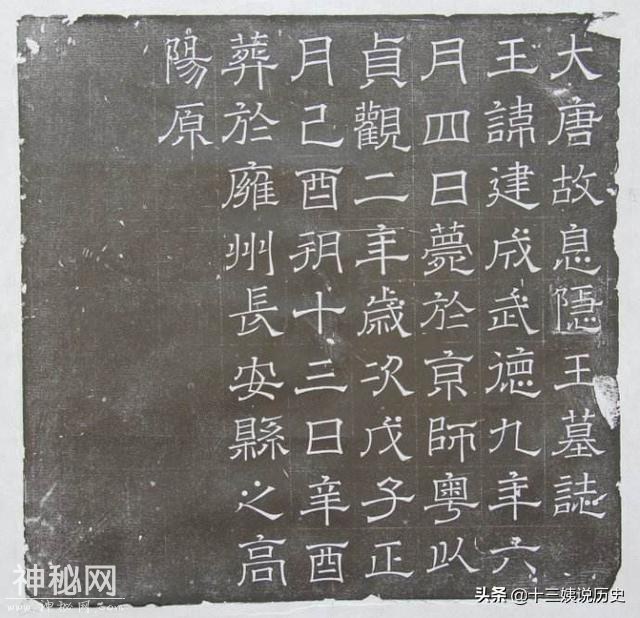 大唐故息隱王墓誌
王諱建成武德九年六
月四日薨於京師粵以
貞觀二年歲次戊子正
月己酉朔十三日辛酉
葬於雍州長安縣之高
陽原
神秘网
头条 @十三姨说历史